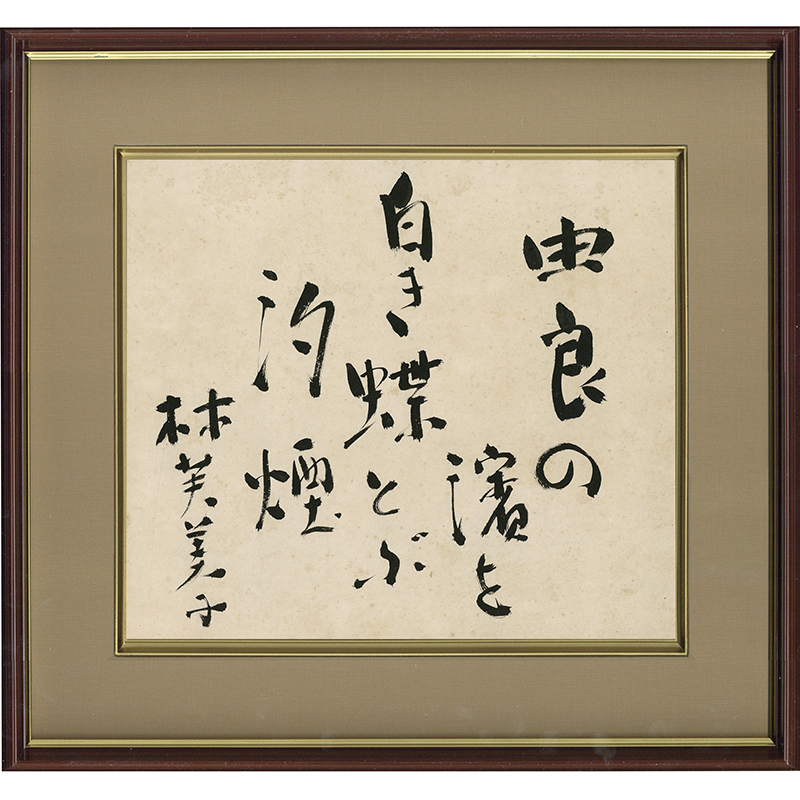 由良の
濱を
白き蝶とぶ
汐
煙
林芙美子